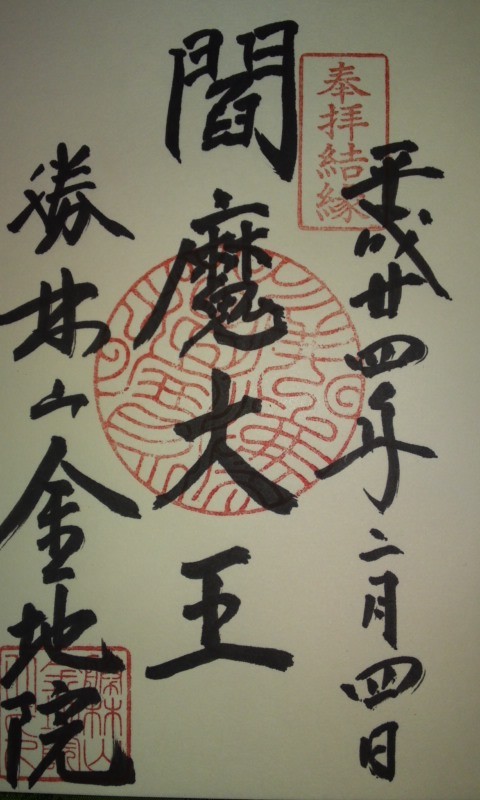 奉拝結縁
平成廿四年二月四日
閻魔大王
勝林山金地院